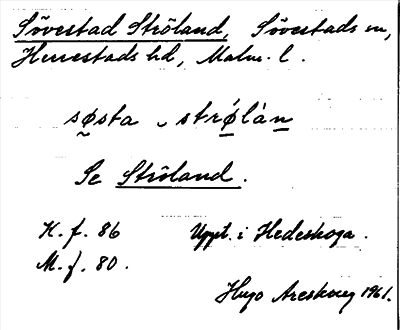 Sövestad Ströland, Sövestads sn,
Herrestads hd, Malm. l.
sø̰sta ˬ strǿ̲làn̲
Se Ströland.
K. f. 86 Uppt. i Hedeskoga.
M. f. 80.
Hugo Areskoug 1961.